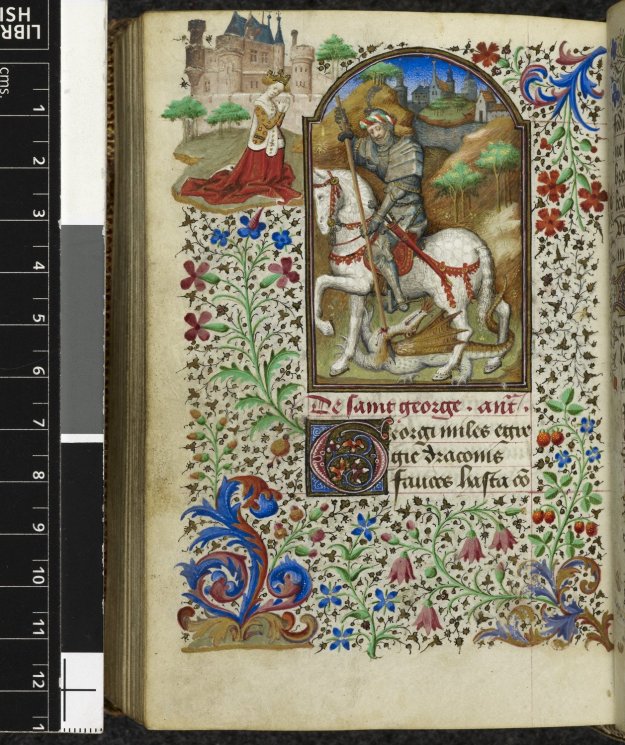 HSI
LIBR
cms.
1
2
3
4
5
6
7
8
9
10
11
12
1
De saint george . ant̃ .
Georgi miles egre
gie draconis
fauces hasta cō